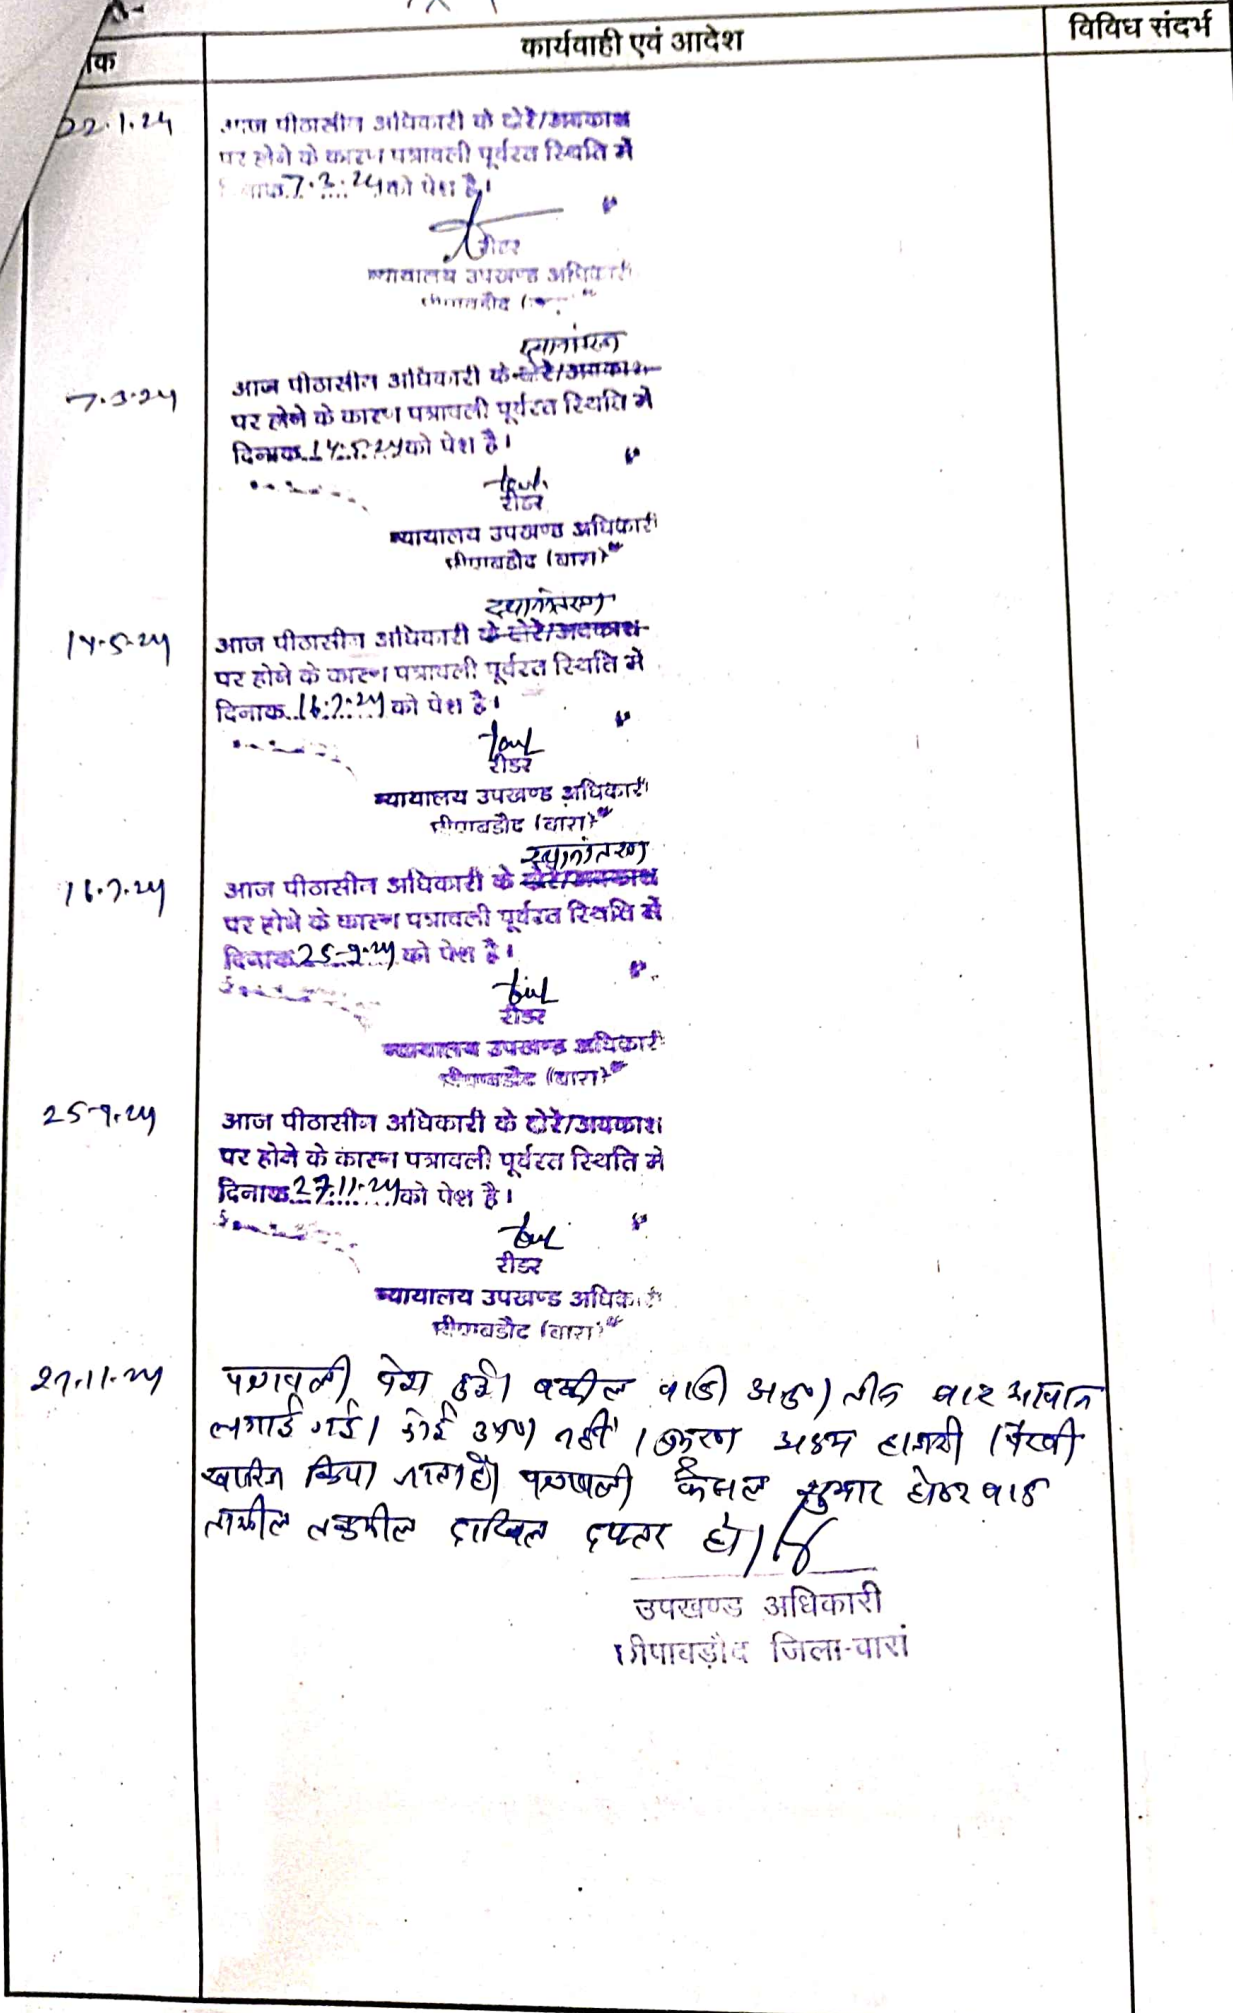 कार्यवाही एवं आदेश
विविध संदर्भ
22.1.24
आज पीठासीन अधिकारी के दौरे/अवकाश
पर होने के कारण पत्रावली पूर्वरत स्थिति में
7.3.24 को पेश है।
रीडर
न्यायालय उपखण्ड अधिकारी
स्थानांतरण
7.3.24
आज पीठासीन अधिकारी के दौरे/अवकाश
पर होने के कारण पत्रावली पूर्वरत स्थिति में
दिनांक 14.5.24 को पेश है।
रीडर
न्यायालय उपखण्ड अधिकारी
छीपाबडौद (बारा)
स्थानांतरण
14.5.24
आज पीठासीन अधिकारी के दौरे/अवकाश
पर होने के कारण पत्रावली पूर्वरत स्थिति में
दिनाक 16.7.24 को पेश है।
रीडर
न्यायालय उपखण्ड अधिकारी
छीपाबडौद (बारा)
स्थानांतरण
16.7.24
आज पीठासीन अधिकारी के दौरे/अवकाश
पर होने के कारण पत्रावली पूर्वरत स्थिति में
दिनाक 25-9-24 को पेश है।
रीडर
न्यायालय उपखण्ड अधिकारी
छीपाबडौद (बारा)
25-9-24
आज पीठासीन अधिकारी के दौरे/अवकाश
पर होने के कारण पत्रावली पूर्वरत स्थिति में
दिनाक 27.11.24 को पेश है।
रीडर
न्यायालय उपखण्ड अधिकारी
छीपाबडौद (बारा)
27.11.24
पत्रावली पेश हुई। वकील वादी अनु। तीन बार आवाज
लगाई गई। कोई उप० नहीं। प्रकरण अदम हाजरी पैरवी
खारिज किया जाता है। पत्रावली फैसल शुमार होकर बाद
तामील तकमील दाखिल दफ्तर हो।
उपखण्ड अधिकारी
छीपाबड़ौद जिला-बारां